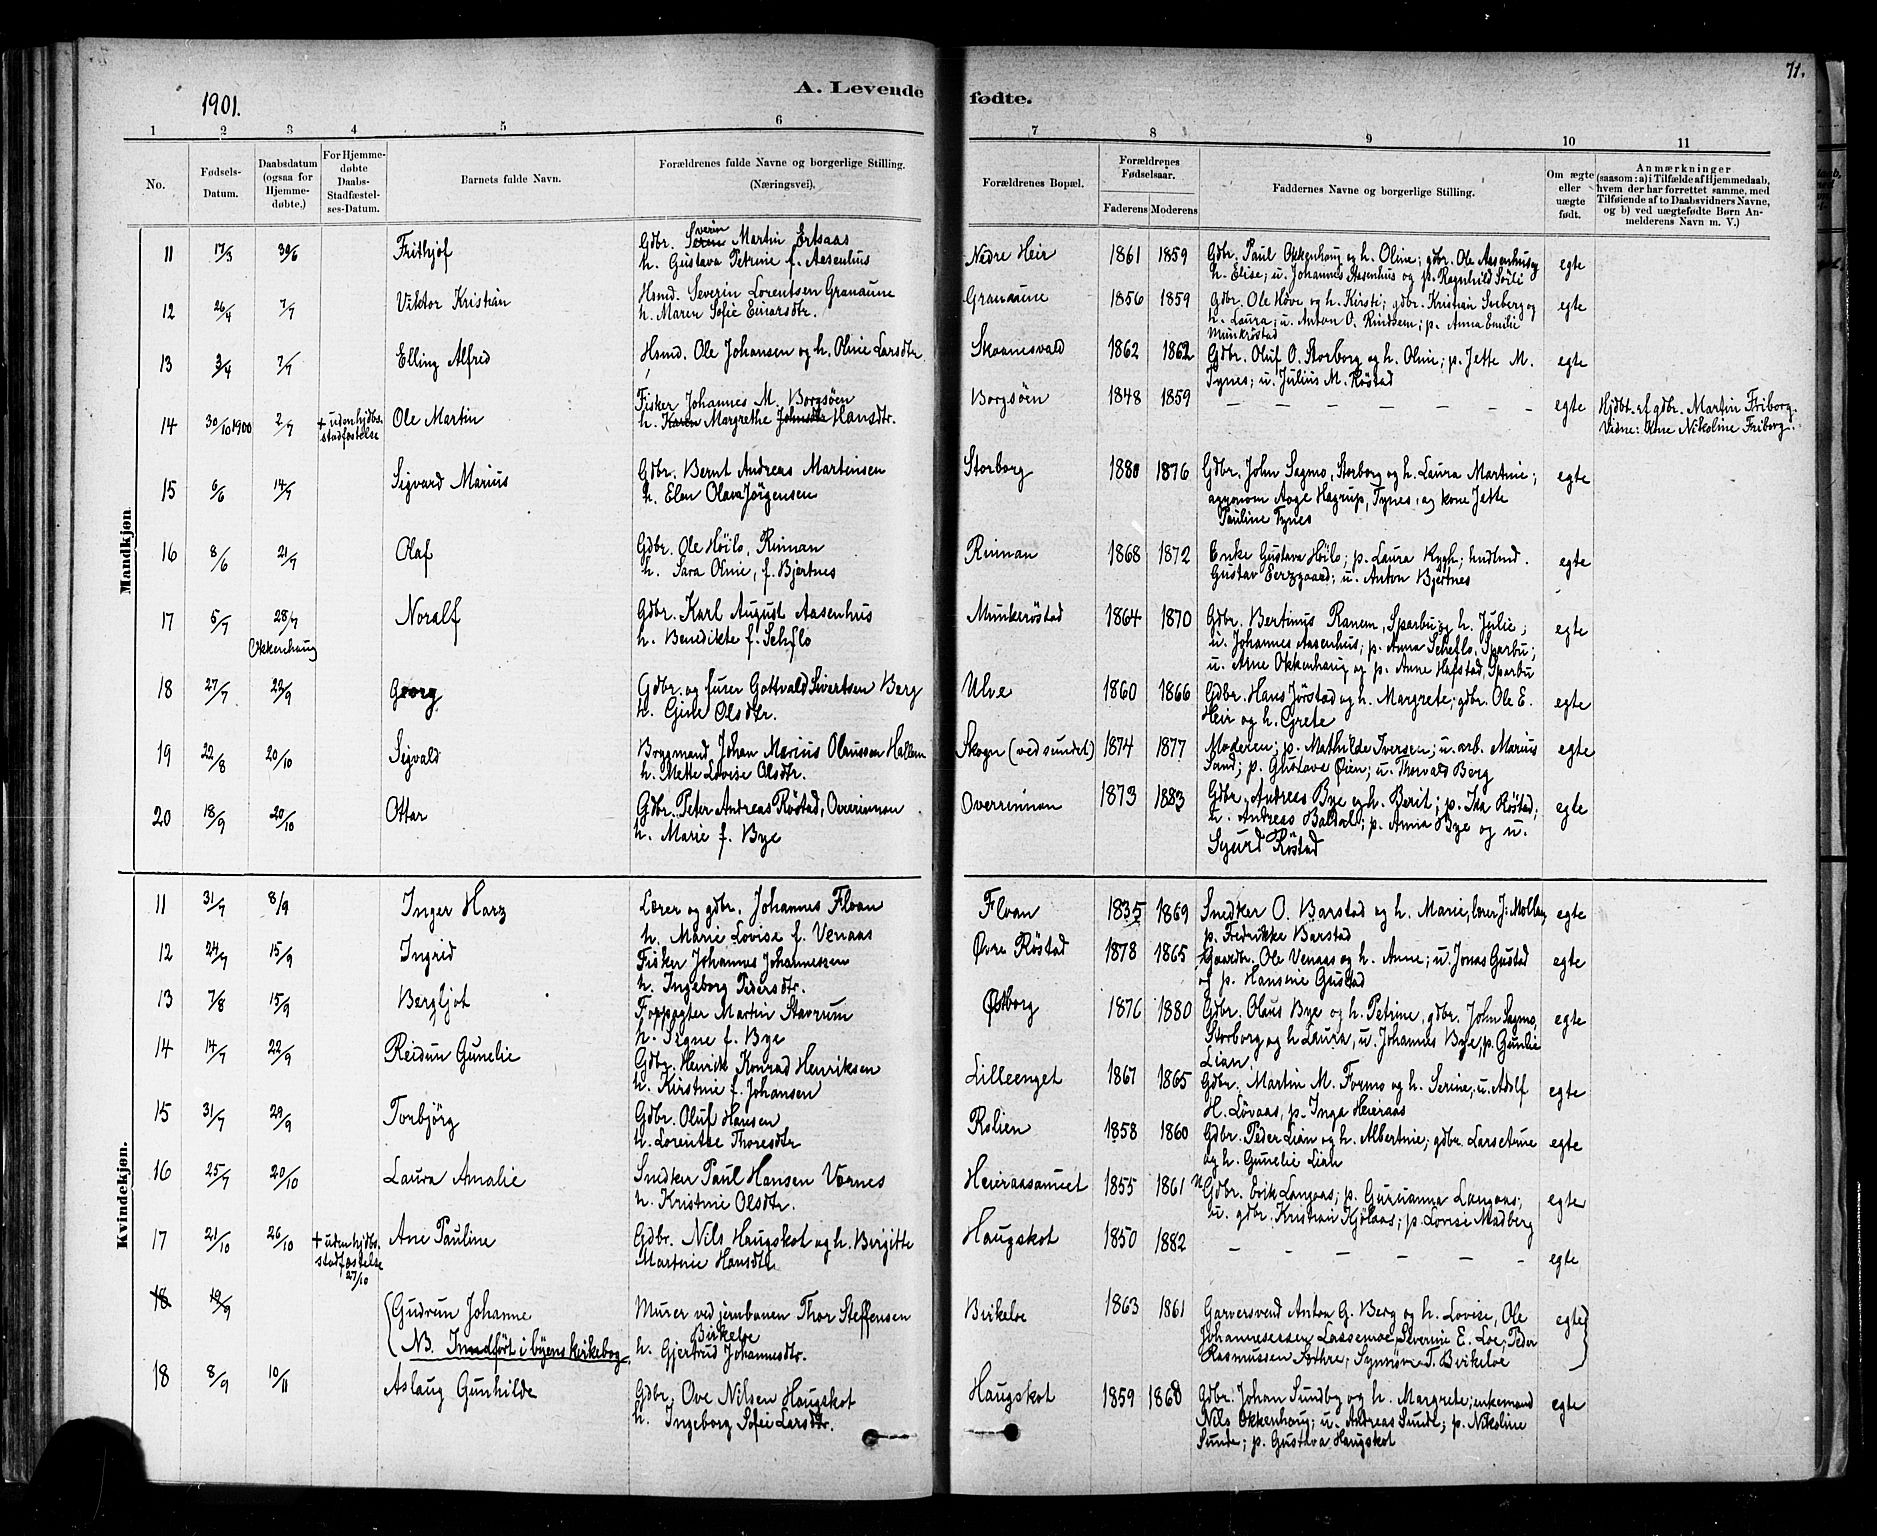 71.
1901.
A. Levende fødte.
1 2 3 4 5 6 7 8 9 10 11
No.
Fødsels-Datum.
Daabsdatum (ogsaa for Hjemme-døbte.)
For Hjemme-døbte Daabs-Stadfæstel-ses-Datum.
Barnets fulde Navn.
Forældrenes fulde Navne og borgerlige Stilling. (Næringsvei).
Forældrenes Bopæl.
Forældrenes Fødselsaar.
Faderens Moderens
Faddernes Navne og borgerlige Stilling.
Om ægte eller uægte født.
Anmærkninger (saasom: a) i Tilfælde af Hjemmedaab, hvem der har forrettet samme, med Tilføiende af to Daabsvidners Navne, og b) ved uægtefødte Børn An-melderens Navn m. V.)
Mandkjøn
11 17/3 30/6 Frithjof Gdbr. Severin Martin Ertsaas Nedre Heir 1861 1859 Gdbr. Paul Okkenhaug og h. Oline; gdbr. Ole Aasenhus og egte
h. Gustava Petrine f. Aasenhus h. Elise; u. Johannes Aasenhus og p. Ragnhild
12 26/4 7/7 Viktor Kristian Hsmd. Severin Lorentsen Granaune Granaune 1856 1859 Gdbr. Ole Hove og h. Kirsti; gdbr. Kristian Sneberg og egte
h. Maren Sofie Einarsdtr. h. Laura; u. Anton O. Rindsem; p. Anna Emilie
Munkrøstad
13 3/4 7/7 Elling Alfred Hsmd. Ole Johansen og h. Oline Larsdtr Skaanesvald 1862 1862 Gdbr. Oluf O. Storborg og h. Oline; p. Jette M. egte
Tynes; u. Julius M. Røstad
14 30/10 1900 2/7 + uden hjdbs. stadfæstelse Ole Martin Fisker Johannes M. Borgsøen Borgsøen 1848 1859 — — — — — — egte Hjdbt. af gdbr. Martin Friborg.
h. Karen Margrethe Johnsdtr Hansdtr. Vidne: Kone Nikoline Friborg.
15 6/6 14/7 Sigvard Marius Gdbr. Bernt Andreas Martinsen Storborg 1880 1876 Gdbr. John Sagmo, Storborg og h. Laura Martine; egte
h. Elen Olava Jørgensen agronom Aage Hagrup, Tynes, og kone Jette
Pauline Tynes
16 8/6 21/7 Olaf Gdbr. Ole Høilo, Rinnan Rinnan 1868 1872 Enke Gustava Høilo; p. Laura Rygh; egte
h. Sara Oline, f. Bjertnes Gustav; u. Anton Bjertnes
17 5/7 28/7 Okkenhaug Noralf Gdbr. Karl August Aasenhus Munkerøstad 1864 1870 Gdbr. Bertinus Ranem, Sparbu og h. Julie; egte
h. Benedikte f. Scheflo u. Johannes Aasenhus; p. Anna Scheflo, Sparbu;
u. Arne Okkenhaug og p. Anne Hafstad, Sparbu
18 27/7 22/9 Georg Gdbr. og furer Gottvald Sivertsen Berg Ulve 1860 1866 Gdbr. Hans Jørstad og h. Margrete; gdbr. Ole E. egte
h. Gine Olsdtr. Heir og h. Grete
19 22/8 20/10 Sigvald Brygmand Johan Marius Olaussen Hallem Skogn (ved sundet) 1874 1877 Moderen; p. Mathilde Iversen; u. arb. Marius egte
h. Mette Lovise Olsdtr. Sand; p. Gustave Øien; u. Thorvald Berg
20 18/9 20/10 Ottar Gdbr. Peter Andreas Røstad, Overrinnan Overrinnan 1873 1883 Gdbr. Andreas Bye og h. Berit; p. Ida Røstad; egte
h. Marie f. Bye u. Andreas; p. Anna Bye og u.
Sigurd Røstad
Kvindekjøn.
11 31/7 8/9 Inger Harz Lærer og gdbr. Johannes Floan Floan 1835 1869 Snedker O. Barstad og h. Marie, lærer egte
h. Marie Lovise f. Venaas p. Fredrikke Barstad
12 24/7 15/9 Ingrid Fisker Johannes Johannessen Øvre Røstad 1878 1865 Gaardbr. Ole Venaas og h. Anne; u. Jonas Gustad egte
h. Ingeborg Pedersdtr. og p. Hansine Gustad
13 7/8 15/9 Bergljot Forpagter Martin Stavrum Østborg 1876 1880 Gdbr. Olaus Bye og h. Petrine, gdbr. John Sagmo, egte
h. Signe f. Bye Storborg og h. Laura, u. Johannes Bye, p. Gunelie
Lian.
14 14/7 22/9 Reidun Gunelie Gdbr. Henrik Konrad Henriksen Lilleenget 1867 1865 Gdbr. Martin M. Formo og h. Serine, u. Adolf egte
h. Kristine f. Johansen H. Løvaas, p. Inga Heieraas
15 31/7 29/9 Torbjørg Gdbr. Oluf Hansen Rolien 1858 1860 Gdbr. Peder Lian og h. Albertine; gdbr. Lars Arne egte
h. Lorentse Thoresdtr og h. Gunelie Lian
16 25/7 20/10 Laura Amalie Snedker Paul Hansen Vernes Heieraasaunet 1855 1861 Gdbr. Erik Langaas; p. Gurianna Langaas; egte
h. Kristine Olsdtr. u. gdbr. Kristian Kjølaas; p. Lovise Madberg
17 21/10 26/10 + uden hjdbs. stadfæstelse 27/10 Ane Pauline Gdbr. Nils Haugskot og h. Birgitte Haugskot 1850 1882 — — — — — egte
Martine Hansdtr
18 19/9 Gudrun Johanne Murer ved jernbanen Thor Steffensen Birkeloe Birkeloe 1863 1861 Garversvend Anton G. Berg og h. Lovise, Ole egte
NB. Inndført i byens kirkebog. h. Gjertrud Johannesdtr. Johannesessen Lassemoe, Severine E. Loe, Peder
Rasmussen; Synnøve T. Birkeloe
18 8/9 10/11 Aslaug Gunhilde Gdbr. Ove Nilsen Haugskot Haugskot 1859 1868 Gdbr. Johan Sundby og h. Margrete; enkemand egte
h. Ingeborg Sofie Larsdtr. Nils Okkenhaug; u. Andreas Sunde; p. Nikoline
Sunde; p. Gustava Haugskot